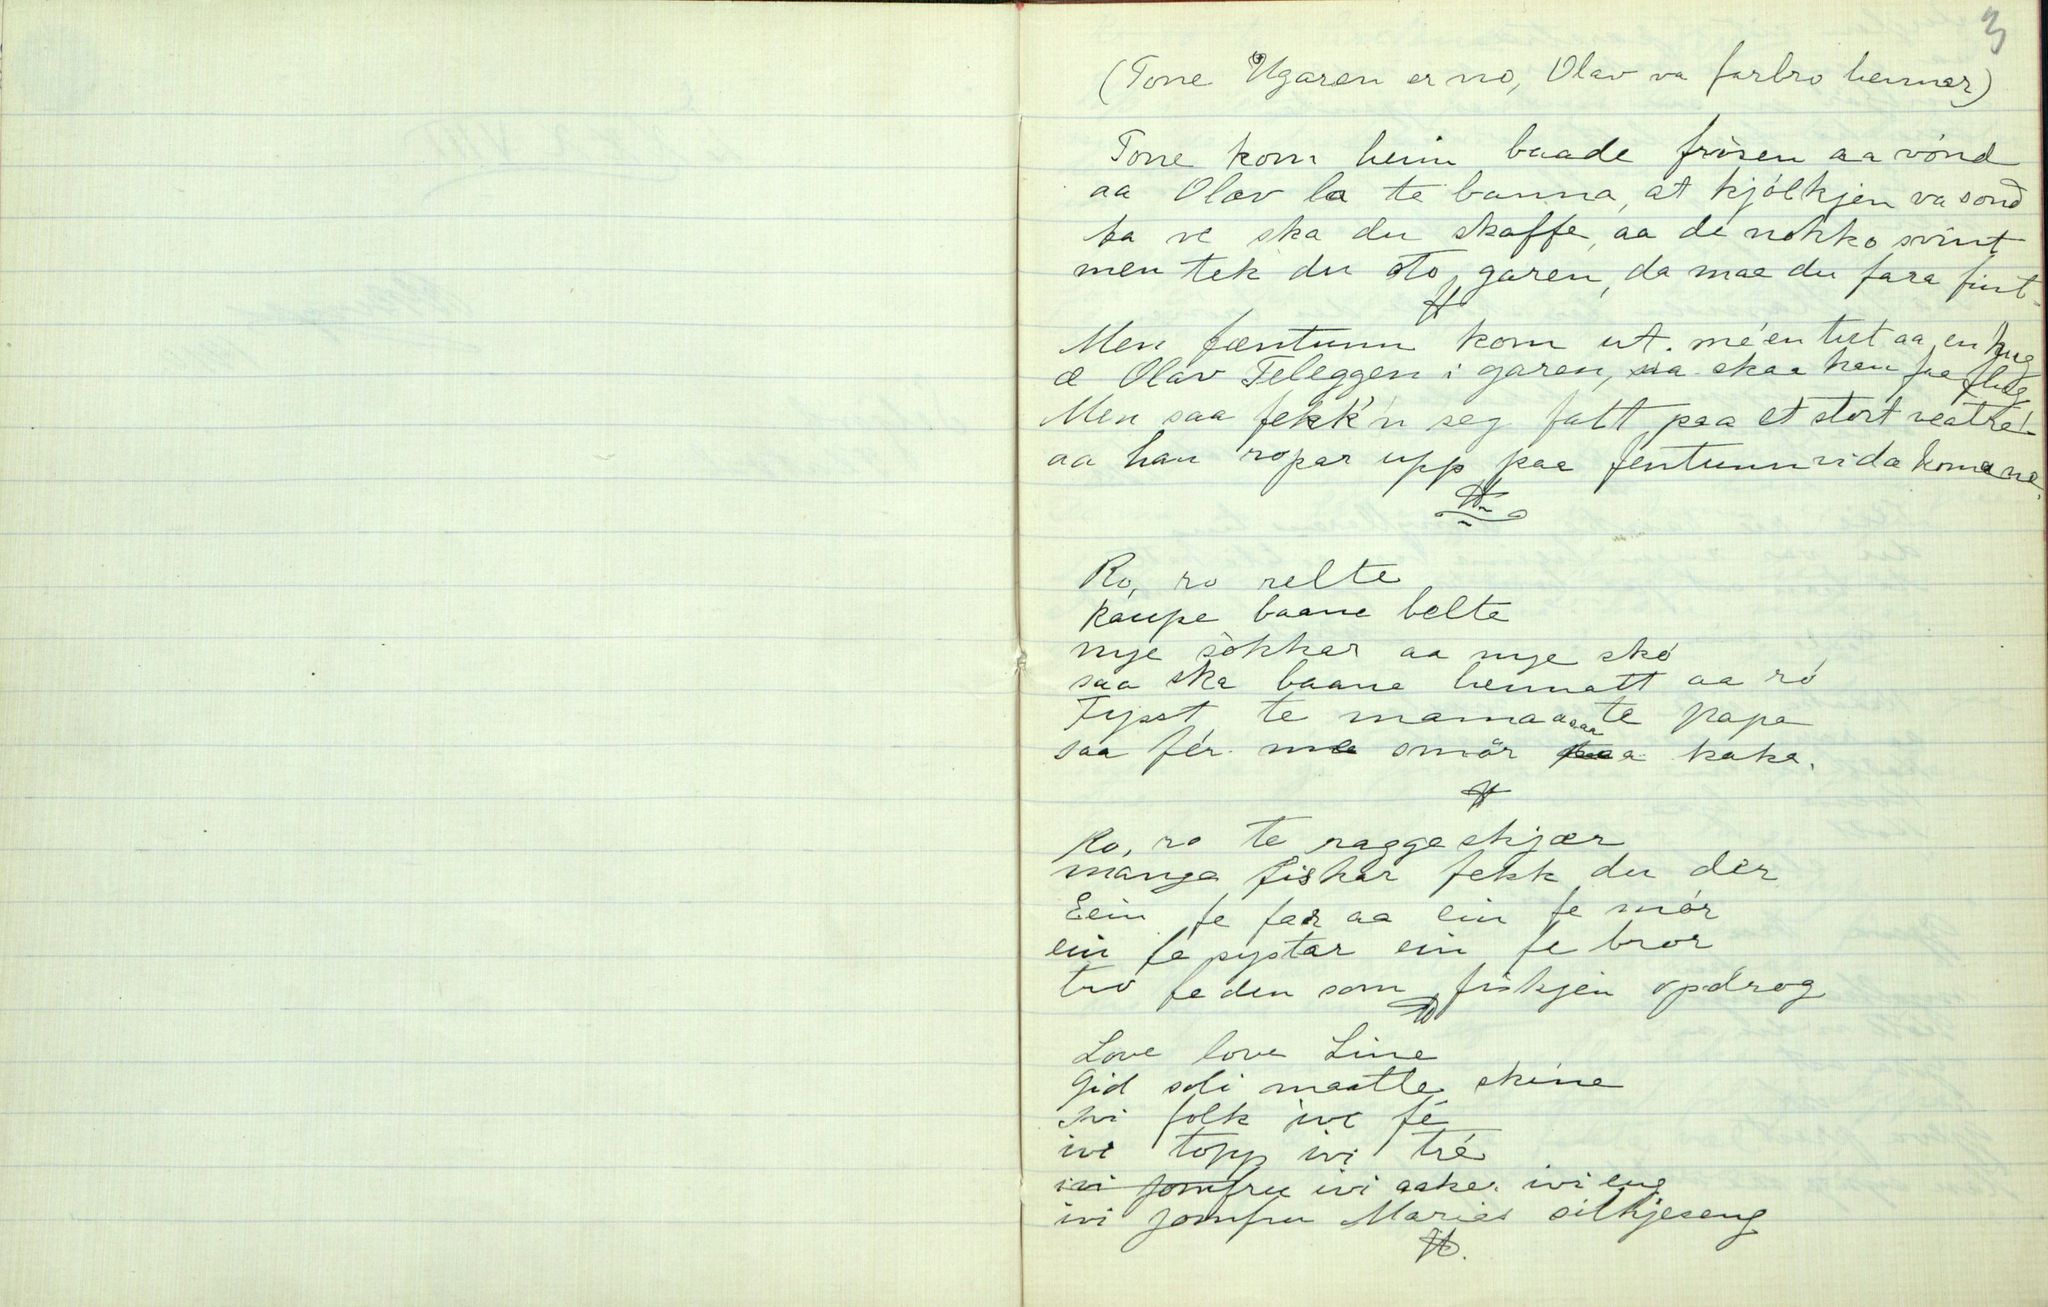 3
(Tone Ugaren er no, Olav va farbro hennar)
Tone kom heim baade frósen aa vónd
aa Olav la te banna, at kjólkjen va sond
ta ve ska du skaffe, aa de nokko svint
men tek du sto, garen, da maa du fara fint
Men fæntunn kom ut. mé en tut aa en hug
æ Olav Teleggen i garen, saa skaa han faa flug
Men saa fekk'n seg fatt paa et stort veatré
aa han ropar upp paa fentunn vi da koma ne.
Ro, ro relte
kaupe baane belte
nye sokkar aa nye skó
saa ska baane hennatt aa ró
Fysst te mama saa te papa
saa fér me smör paa kaka.
Ro, ro te raggeskjær
mange fiskar fekk du der
Eein fe far aa ein fe mór
ein fe systar ein fe bror
tvo fe den som fiskjen opdrog
Love love Line
Gid soli maatte skine
ivi folk ivi fé
ivi topp ivi tré
ivi jomfru ivi aaker ivi eng
ivi jomfru Marias silkjeseng